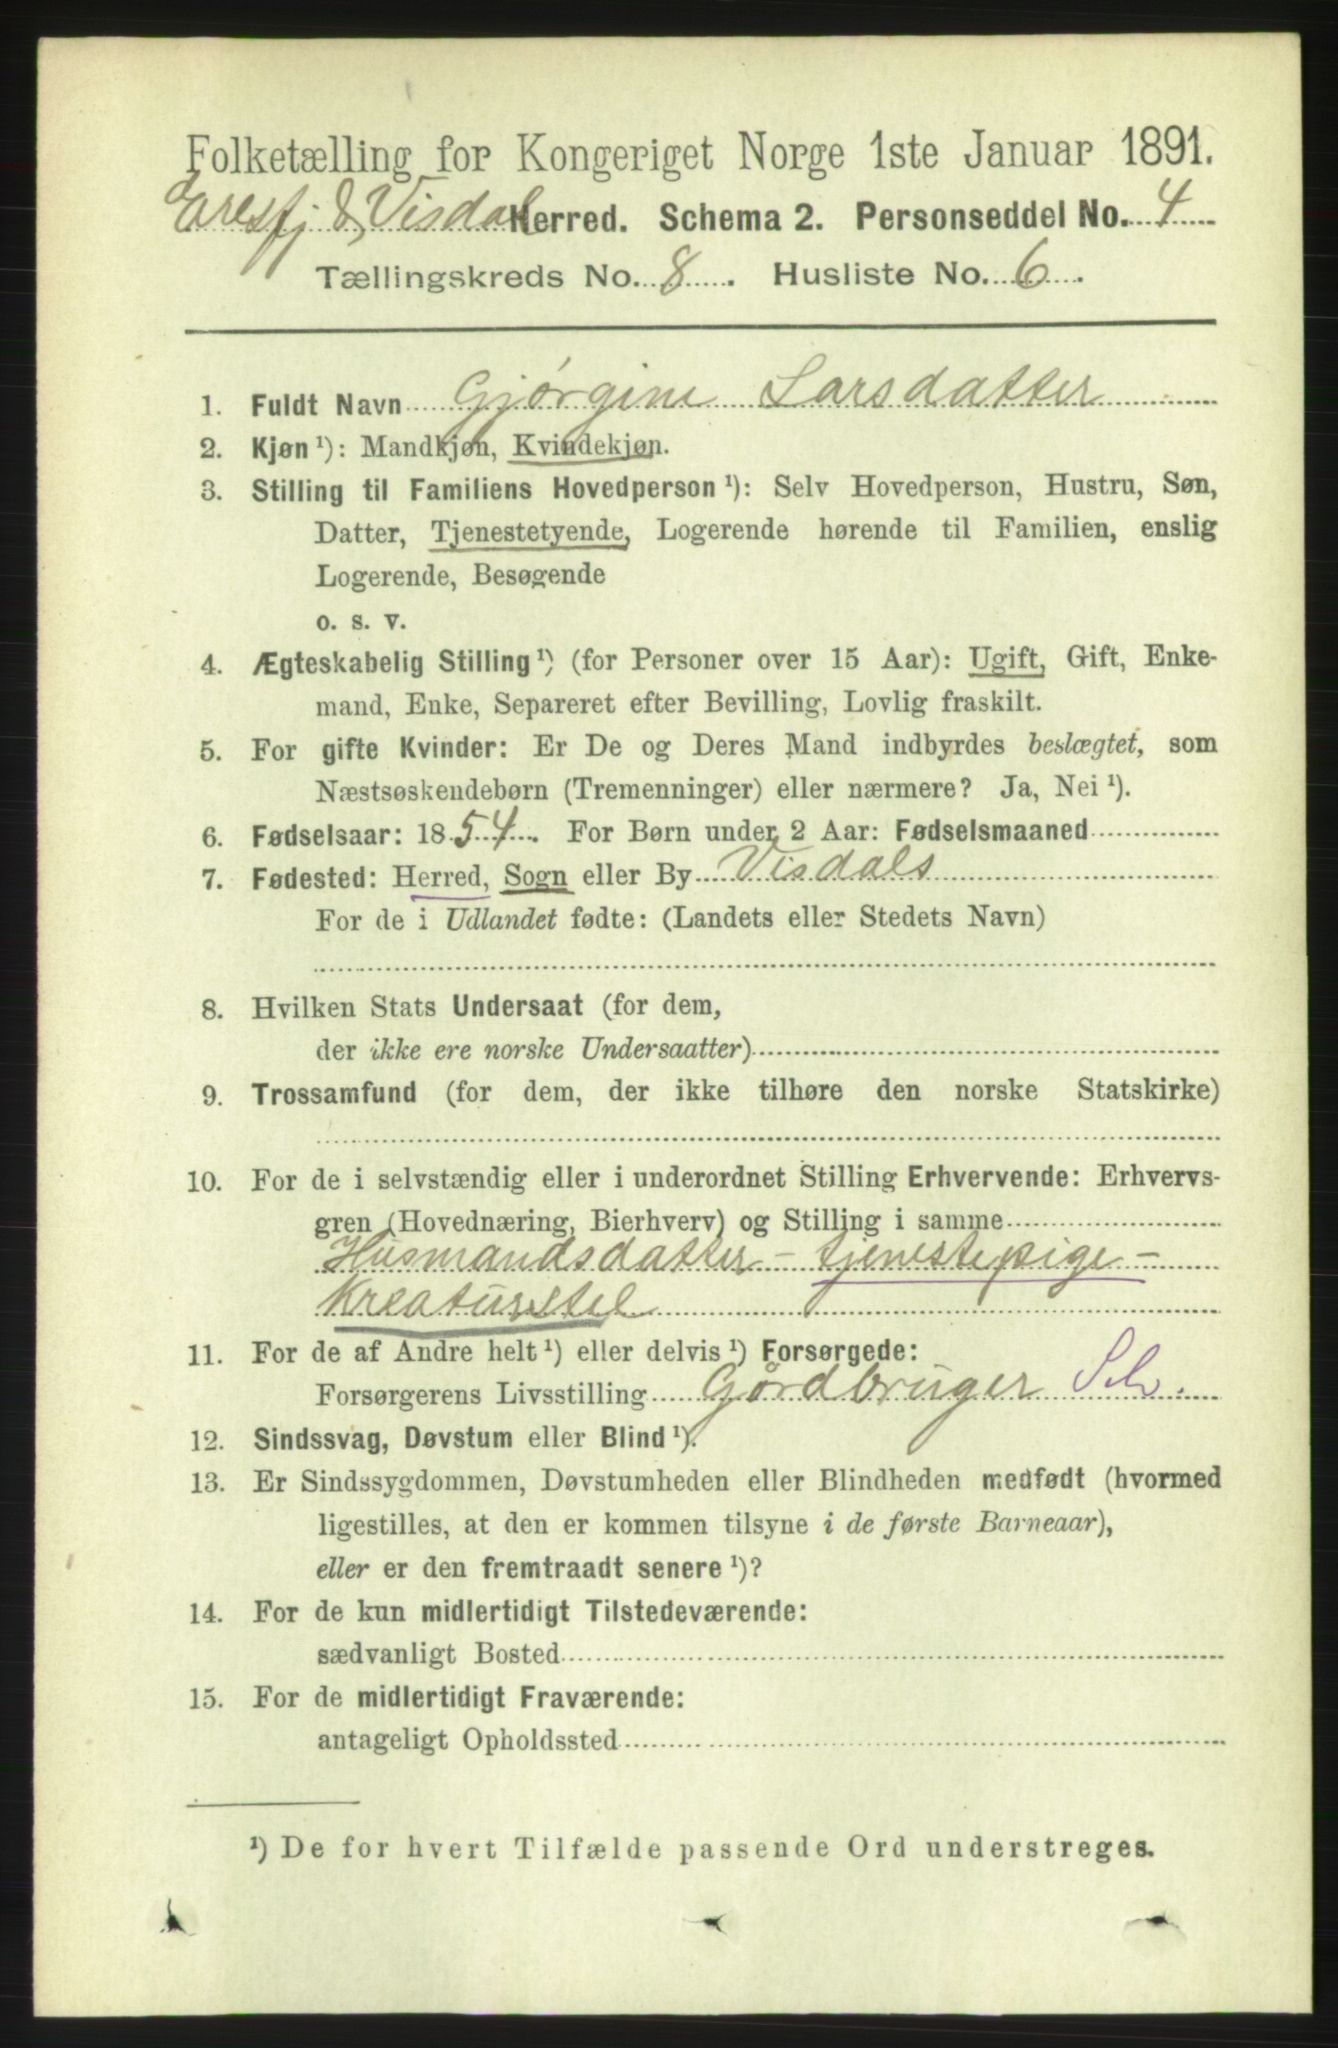 Folketælling for Kongeriget Norge 1ste Januar 1891.
Eresfj & Visdal Herred. Schema 2. Personseddel No. 4
Tællingskreds No. 8. Husliste No. 6.
1. Fuldt Navn Gjørgine Larsdatter
2. Kjøn ¹): Mandkjøn, Kvindekjøn.
3. Stilling til Familiens Hovedperson ¹): Selv Hovedperson, Hustru, Søn,
Datter, Tjenestetyende, Logerende hørende til Familien, enslig
Logerende, Besøgende
o. s. v.
4. Ægteskabelig Stilling ¹) (for Personer over 15 Aar): Ugift, Gift, Enke-
mand, Enke, Separeret efter Bevilling, Lovlig fraskilt.
5. For gifte Kvinder: Er De og Deres Mand indbyrdes beslægtet, som
Næstsøskendebørn (Tremenninger) eller nærmere? Ja, Nei ¹).
6. Fødselsaar: 1854. For Børn under 2 Aar: Fødselsmaaned
7. Fødested: Herred, Sogn eller By Visdals
For de i Udlandet fødte: (Landets eller Stedets Navn)
8. Hvilken Stats Undersaat (for dem,
der ikke ere norske Undersaatter)
9. Trossamfund (for dem, der ikke tilhøre den norske Statskirke)
10. For de i selvstændig eller i underordnet Stilling Erhvervende: Erhvervs-
gren (Hovednæring, Bierhverv) og Stilling i samme
Husmandsdatter - tjenestepige -
Kreaturstel
11. For de af Andre helt ¹) eller delvis ¹) Forsørgede:
Forsørgerens Livsstilling Gårdbruger Selv.
12. Sindssvag, Døvstum eller Blind ¹).
13. Er Sindssygdommen, Døvstumheden eller Blindheden medfødt (hvormed
ligestilles, at den er kommen tilsyne i de første Barneaar),
eller er den fremtraadt senere ¹)?
14. For de kun midlertidigt Tilstedeværende:
sædvanligt Bosted
15. For de midlertidigt Fraværende:
antageligt Opholdssted
¹) De for hvert Tilfælde passende Ord understreges.